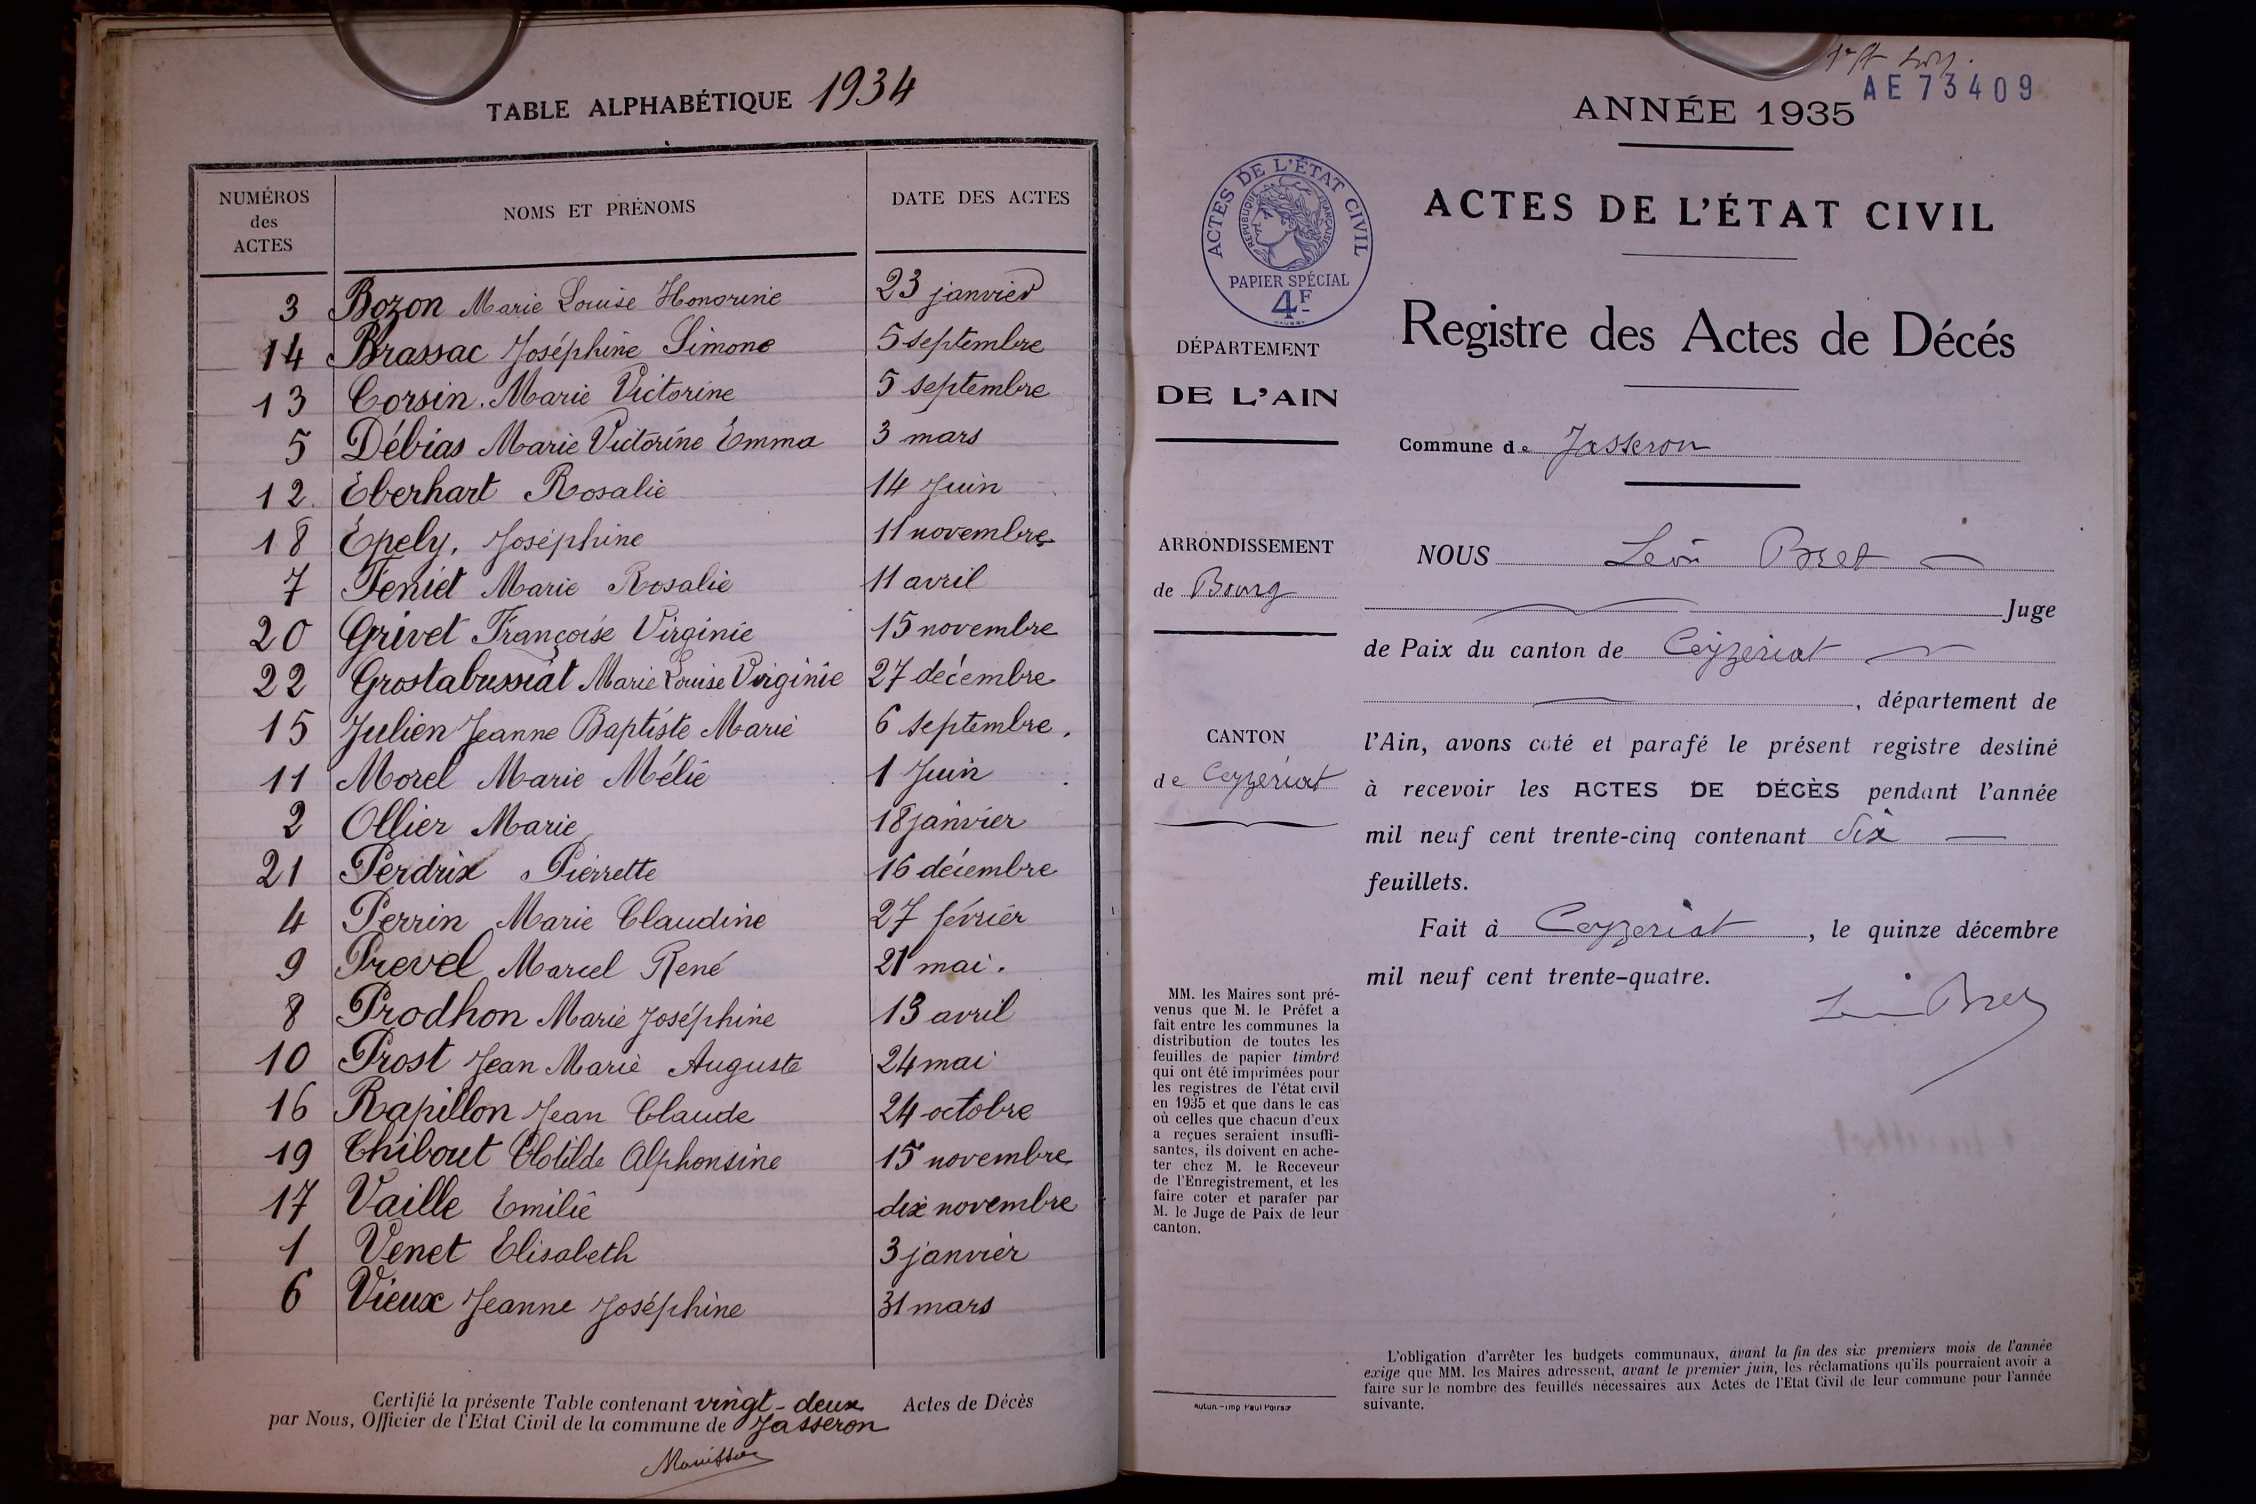 TABLE ALPHABÉTIQUE 1934
NUMÉROS des ACTES NOMS ET PRÉNOMS DATE DES ACTES
3 Bozon Marie Louise Honorine 23 janvier
14 Brassac Joséphine Simone 5 septembre
13 Corsin. Marie Victorine 5 septembre
5 Débias Marie Victorine Emma 3 mars
12 Eberhart Rosalie 14 Juin
18 Épely, Joséphine 11 novembre
7 Feniet Marie Rosalie 11 avril
20 Grivet Françoise Virginie 15 novembre
22 Grostabussiat Marie Louise Virginie 27 décembre
15 Julien Jeanne Baptiste Marie 6 septembre.
11 Morel Marie Mélie 1 Juin
2 Ollier Marie 18 janvier
21 Perdrix Pierrette 16 décembre
4 Perrin Marie Claudine 27 février
9 Prevel Marcel René 21 mai.
8 Prodhon Marie Joséphine 13 avril
10 Prost Jean Marie Auguste 24 mai
16 Rapillon Jean Claude 24 octobre
19 Thibout Clotilde Alphonsine 15 novembre
17 Vaille Emilie dix novembre
1 Venet Elisabeth 3 janvier
6 Vieux Jeanne Joséphine 31 mars
Certifié la présente Table contenant vingt-deux Actes de Décès
par Nous, Officier de l'Etat Civil de la commune de Jasseron
AE 73409
ANNÉE 1935
ACTES DE L'ÉTAT CIVIL
RÉPUBLIQUE FRANÇAISE
PAPIER SPÉCIAL
4F
ACTES DE L'ÉTAT CIVIL
Registre des Actes de Décés
DÉPARTEMENT
DE L'AIN
Commune de Jasseron
ARRONDISSEMENT
de Bourg
CANTON
de Ceyzeriat
NOUS Léon Bret
Juge
de Paix du canton de Ceyzeriat
, département de
l'Ain, avons coté et parafé le présent registre destiné
à recevoir les ACTES DE DÉCÈS pendant l'année
mil neuf cent trente-cinq contenant Six
feuillets.
Fait à Ceyzeriat, le quinze décembre
mil neuf cent trente-quatre.
Léon Bret
MM. les Maires sont pré-
venus que M. le Préfet a
fait entre les communes la
distribution de toutes les
feuilles de papier timbré
qui ont été imprimées pour
les registres de l'état civil
en 1935 et que dans le cas
où celles que chacun d'eux
a reçues seraient insuffi-
santes, ils doivent en ache-
ter chez M. le Receveur
de l'Enregistrement, et les
faire coter et parafer par
M. le Juge de Paix de leur
canton.
Autun.-Imp Paul Poirson
L'obligation d'arrêter les budgets communaux, avant la fin des six premiers mois de l'année
exige que MM. les Maires adressent, avant le premier juin, les réclamations qu'ils pourraient avoir a
faire sur le nombre des feuilles nécessaires aux Actes de l'Etat Civil de leur commune pour l'année
suivante.